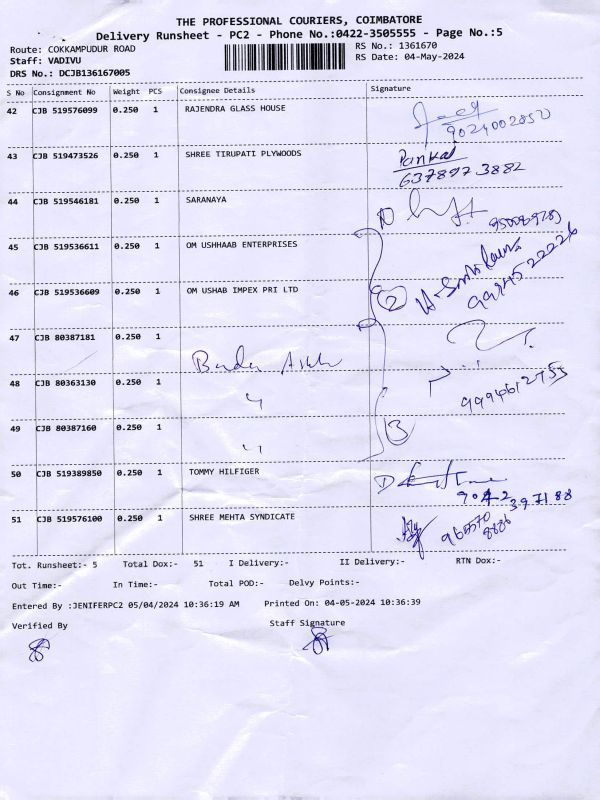 THE PROFESSIONAL COURIERS, COIMBATORE
Delivery Runsheet - PC2 - Phone No.:0422-3505555 - Page No.:5
Route: COKKAMPUDUR ROAD
RS No.: 1361670
Staff: VADIVU
RS Date: 04-May-2024
DRS No.: DCJB136167005
S No Consignment No Weight PCS Consignee Details Signature
42 CJB 519576099 0.250 1 RAJENDRA GLASS HOUSE
9024002850
43 CJB 519473526 0.250 1 SHREE TIRUPATI PLYWOODS Pankaj
44 CJB 519546181 0.250 1 SARANAYA
45 CJB 519536611 0.250 1 OM USHHAAB ENTERPRISES
46 CJB 519536609 0.250 1 OM USHAB IMPEX PRI LTD 2
47 CJB 80387181 0.250 1
48 CJB 80363130 0.250 1 〃
49 CJB 80387160 0.250 1 〃 3
50 CJB 519389850 0.250 1 TOMMY HILFIGER
51 CJB 519576100 0.250 1 SHREE MEHTA SYNDICATE
Tot. Runsheet:- 5 Total Dox:- 51 I Delivery:- II Delivery:- RTN Dox:-
Out Time:- In Time:- Total POD:- Delvy Points:-
Entered By :JENIFERPC2 05/04/2024 10:36:19 AM Printed On: 04-05-2024 10:36:39
Verified By Staff Signature